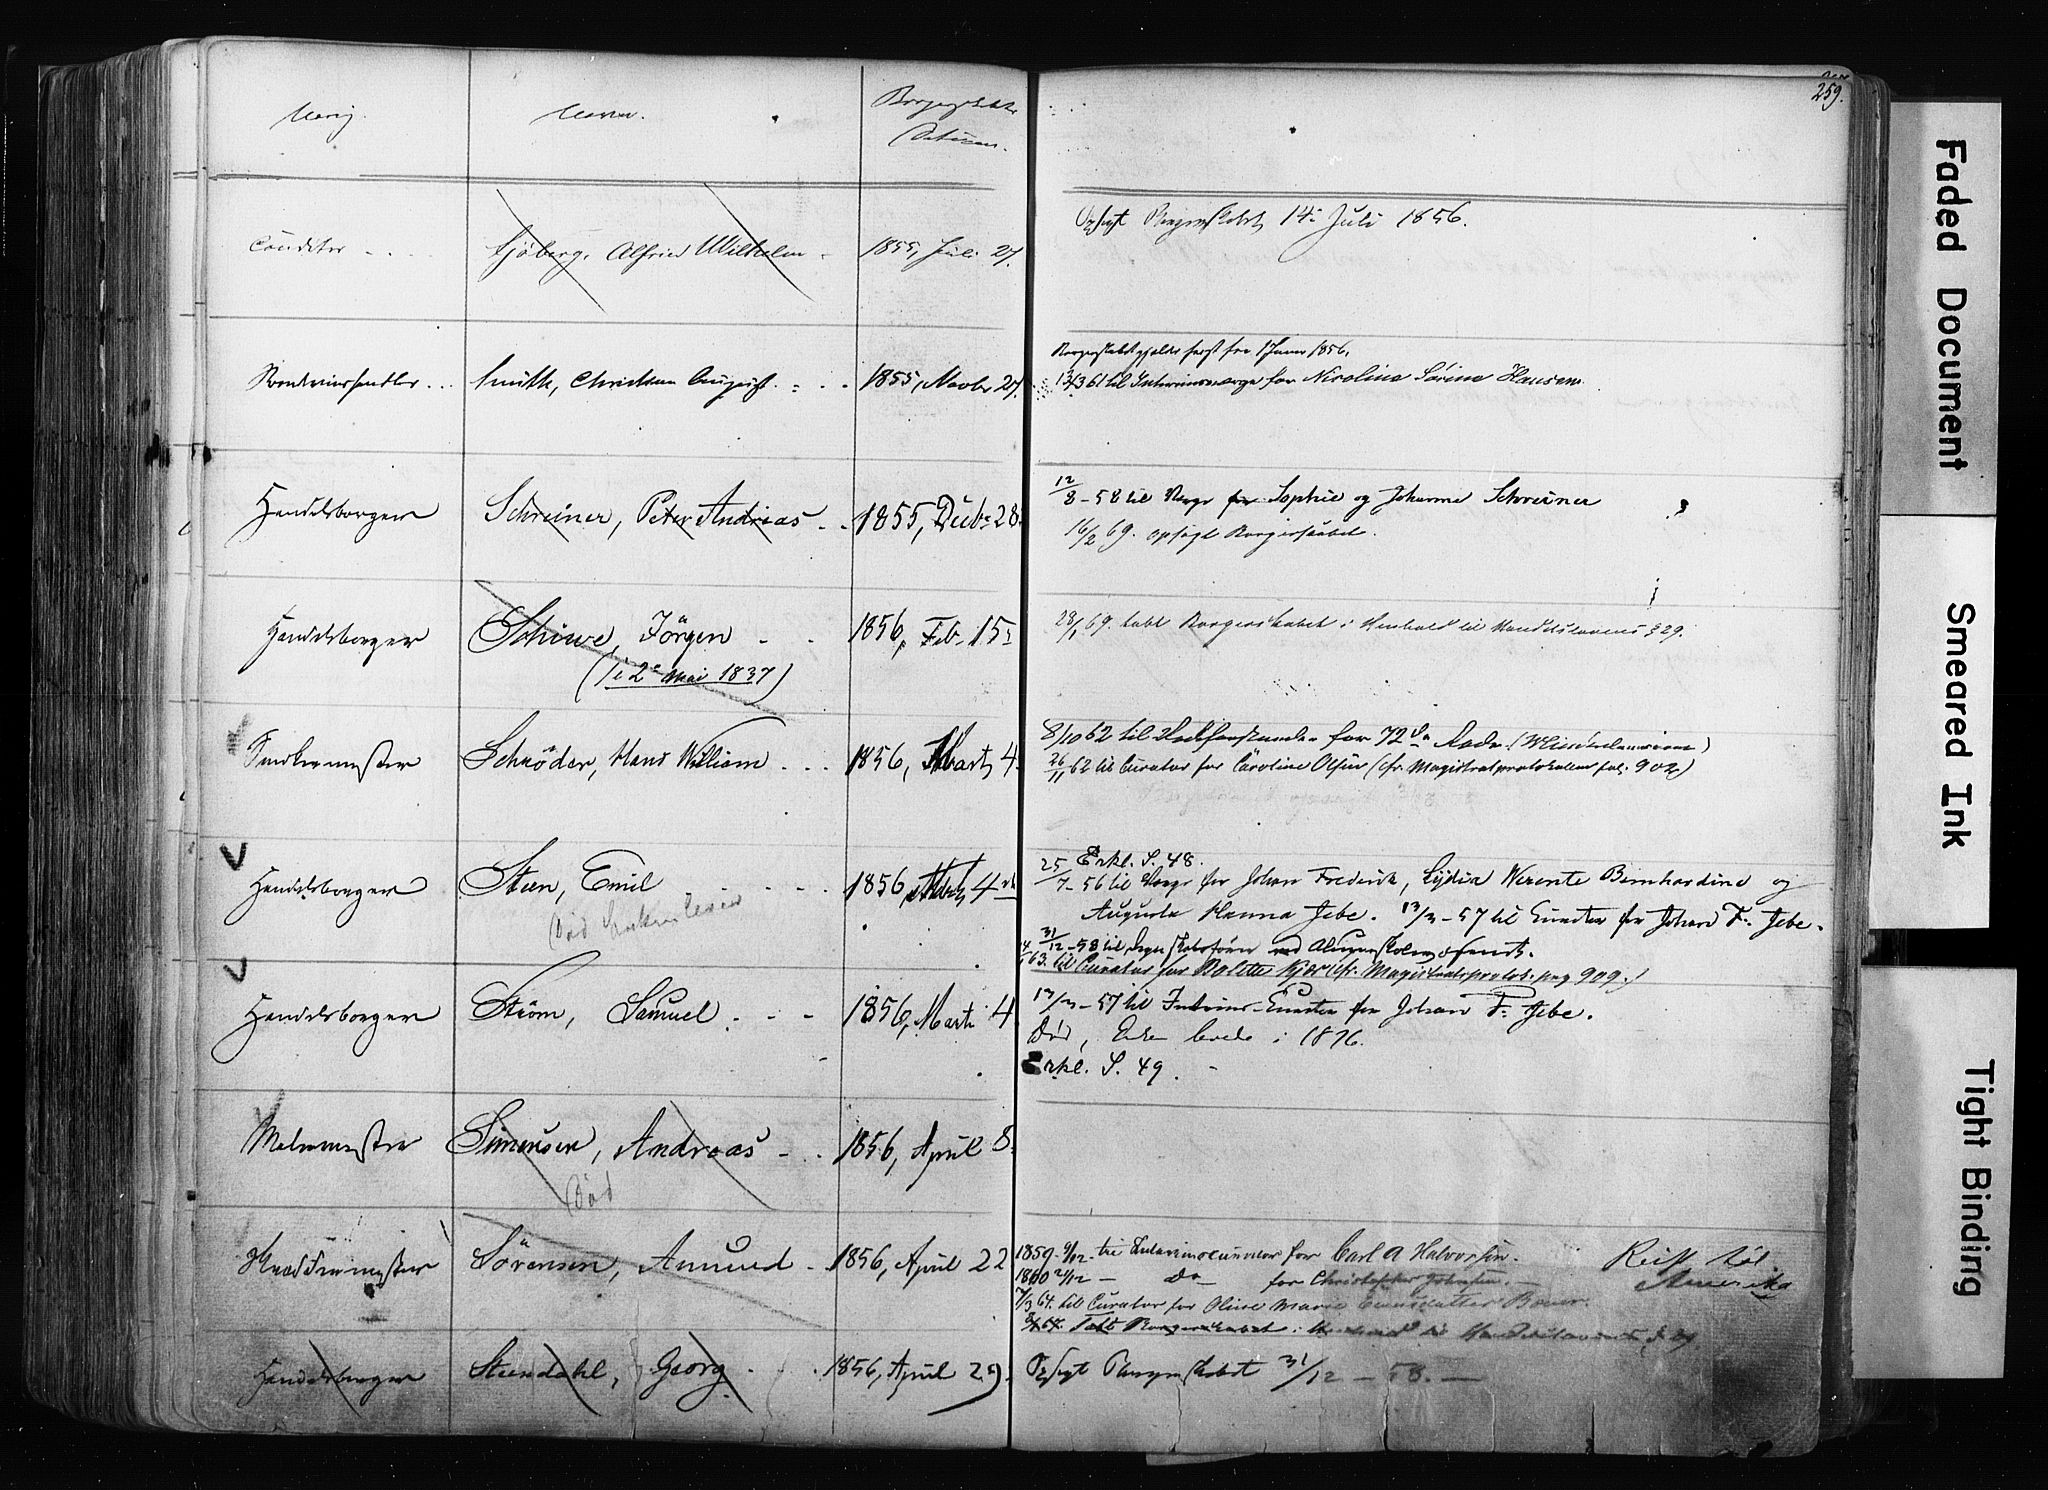 259.
Næring. Navn. Borgerskabets
Datum.
Conditor Sjöberg, Alfried Wilhelm 1855, Juli 27. Opsagt Borgerskabet 14. Juli 1856.
Borgerskabet gjælder først fra 1 Januar 1856.
Smith, Christian August 1855, Novbr 27. 13/3 61 til Interimsværge for Nicoline Sørine Hansen.
Handelsborger Schreiner, Peter Andreas 1855, Decb. 28. 12/8 - 58 til Værge for Sophie og Johanne Schreiner
16/2 69. opsagt Borgerskabet.
Handelsborger Jörgen 1856, Feb. 15. 28/1 69. tabt Borgerskabet i Henhold til Handelslovens § 29.
(i 2 Mai 1837)
Snedkermester Schröder, Hans William 1856, Marts 4. 8/10 62 til for 72de Rode
26/11 62 til Curator for Caroline Olsen (cfr. Magistratsprotokollen fol. 902)
Erkl. S. 48.
Handelsborger Steen, Emil 1856, Marts 4 25/7 - 56 til Værge for Johan Frederik, Lydia Werente Bernhardine og
Død Enken lever
Augusta Hanna Jebe. 13/3 - 57 til Curator for Johan F. Jebe.
31/12 - 58 til ved
63. til Curator for Bolette Kjær (cfr. Magistratsprotok. pag 909.)
Handelsborger Ström, Samuel 1856, Marts 4 13/3 - 57 til Interims-Curator for Johan F. Jebe.
Død, Enken levede i 1876.
Erkl. S. 49.
Malermester Simensen, Andreas 1856, April 8.
Død
Sörensen, Amund 1856, April 22 1859 9/12 til Interimscurator for Carl A Halvorsen. Reist til
1860 21/12 - Do - for Christopher Johnsen. Amerika
7/3 64. til Curator for Oline Marie
Tabt Borgerskabet i Henhold til Handelslovens § 29.
Handelsborger Steendahl, Georg 1856, April 29. Opsagt Borgerskabet 31/12 - 58.
Faded Document
Smeared Ink
Tight Binding